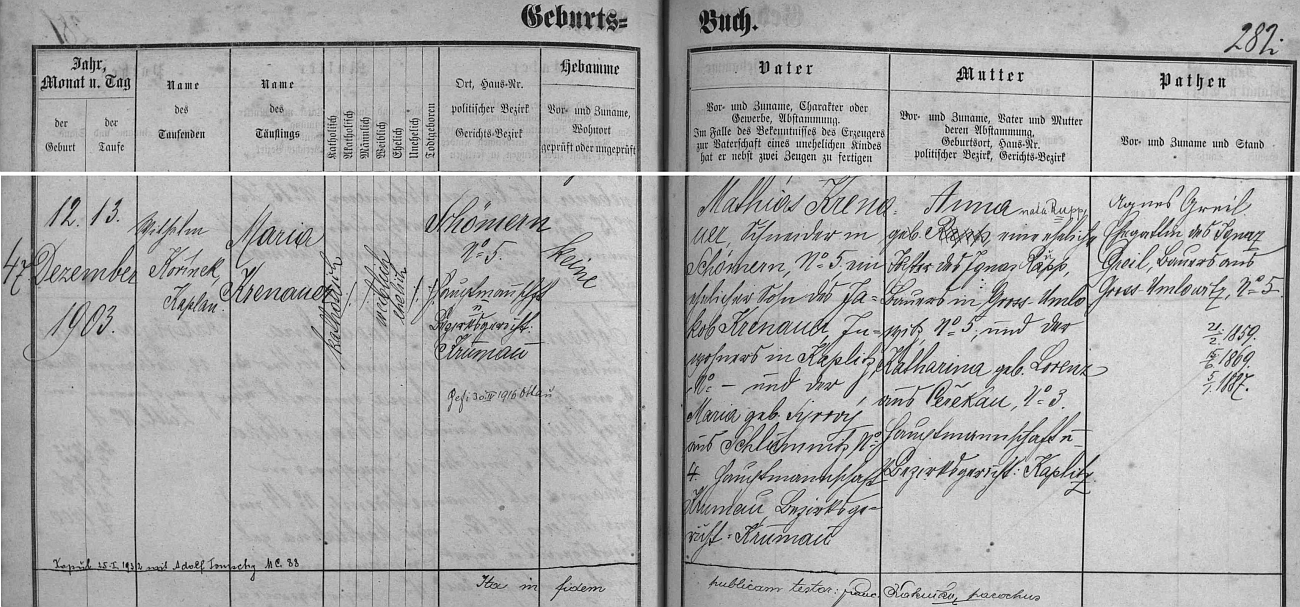 Geburts=
Buch.
282
Jahr,
Monat u. Tag
der
Geburt
der
Taufe
Name
des
Taufenden
Name
des
Täuflings
Katholisch
Akatholisch
Männlich
Weiblich
Ehelich
Unehelich
Todtgeboren
Ort, Haus-Nr.
politischer Bezirk
Gerichts-Bezirk
Hebamme
Vor- und Zuname,
Wohnort
geprüft oder ungeprüft
Vater
Vor- und Zuname, Charakter oder
Gewerbe, Abstammung.
Im Falle des Bekenntnisses des Erzeugers
zur Vaterschaft eines unehelichen Kindes
hat er nebst zwei Zeugen zu fertigen
Mutter
Vor- und Zuname, Vater und Mutter
deren Abstammung,
Geburtsort, Haus-Nr.
politischer Bezirk, Gerichts-Bezirk
Pathen
Vor- und Zuname und Stand
47
12. 13.
Dezember
1903.
Wilhelm
Kořínek
Kaplan.
Maria
Krenauer
katholisch
weiblich
ehelich
Schömern
No 5.
Hauptmannschft
u
Bezirksgericht:
Krumau
keine
Mathias Krena-
uer, Schneider in
Schömern, No 5 ein
ehelicher Sohn des Ja-
kob Krenauer, In-
wohners in Kaplitz,
No - und der
Maria geb.
aus No
4. Hauptmannschaft
Krumau Bezirksge-
richt: Krumau
Anna nata Rupp
geb. eine eheliche
Tochter des Ignaz Rupp,
Bauers in Gross Umlo-
witz No 5, und der
Katharina geb. Lorenz
aus No 3.
Hauptmannschaft u
Bezirksgericht: Kaplitz
Agnes Greil
Ehegattin des Ignaz
Greil, Bauers aus
Gross Umlowitz, No 5
1859.
1869.
1887.
1916 Ottau
Copul. 25. I. 1932 mit Adolf MC. 88
Ita in fidem
publicam testor: parochus